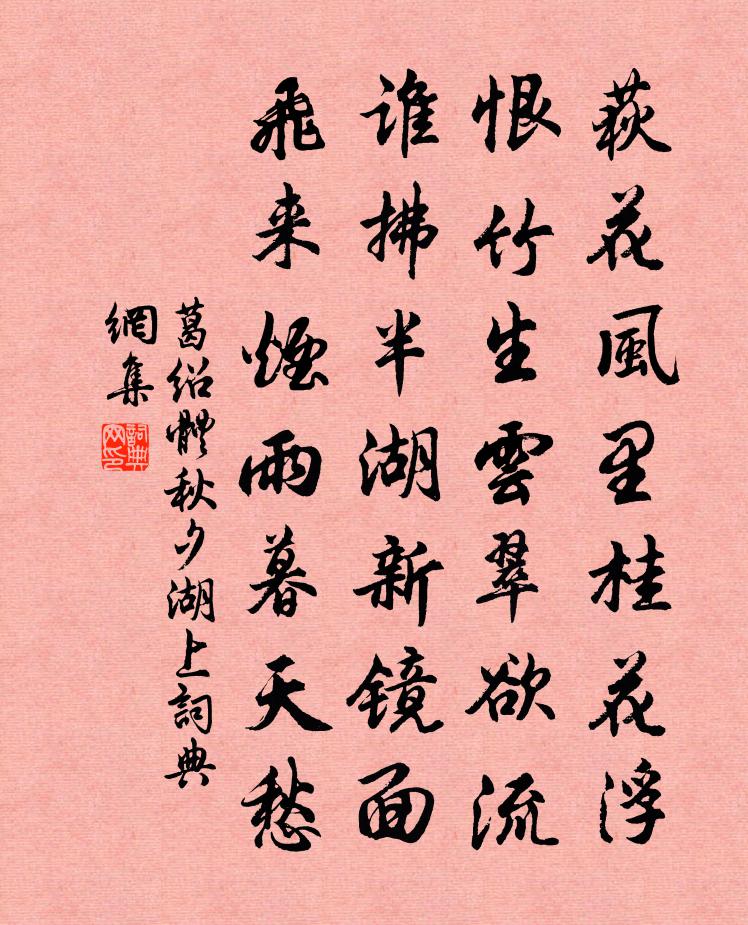 萩花風里桂花浮
恨竹生雲翠欲流
谁拂半湖新镜面
飛来煙雨暮天愁
葛绍體秋夕湖上詞典
網集
詞典
网印